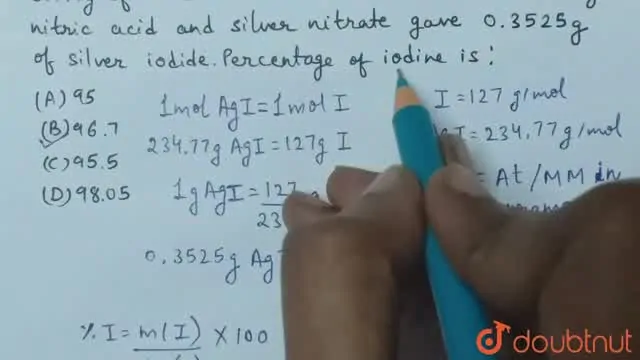 nitric acid and silver nitrate gave 0.3525g
of silver iodide. Percentage of iodine is:
(A) 95
(B) 96.7
(C) 95.5
(D) 98.05
1mol AgI = 1mol I
234.77g AgI = 127g I
1g AgI = 127
0.3525g Ag
% I = m(I) X 100
I = 127 g/mol
= 234.77g/mol
= At/MM in
doubtnut